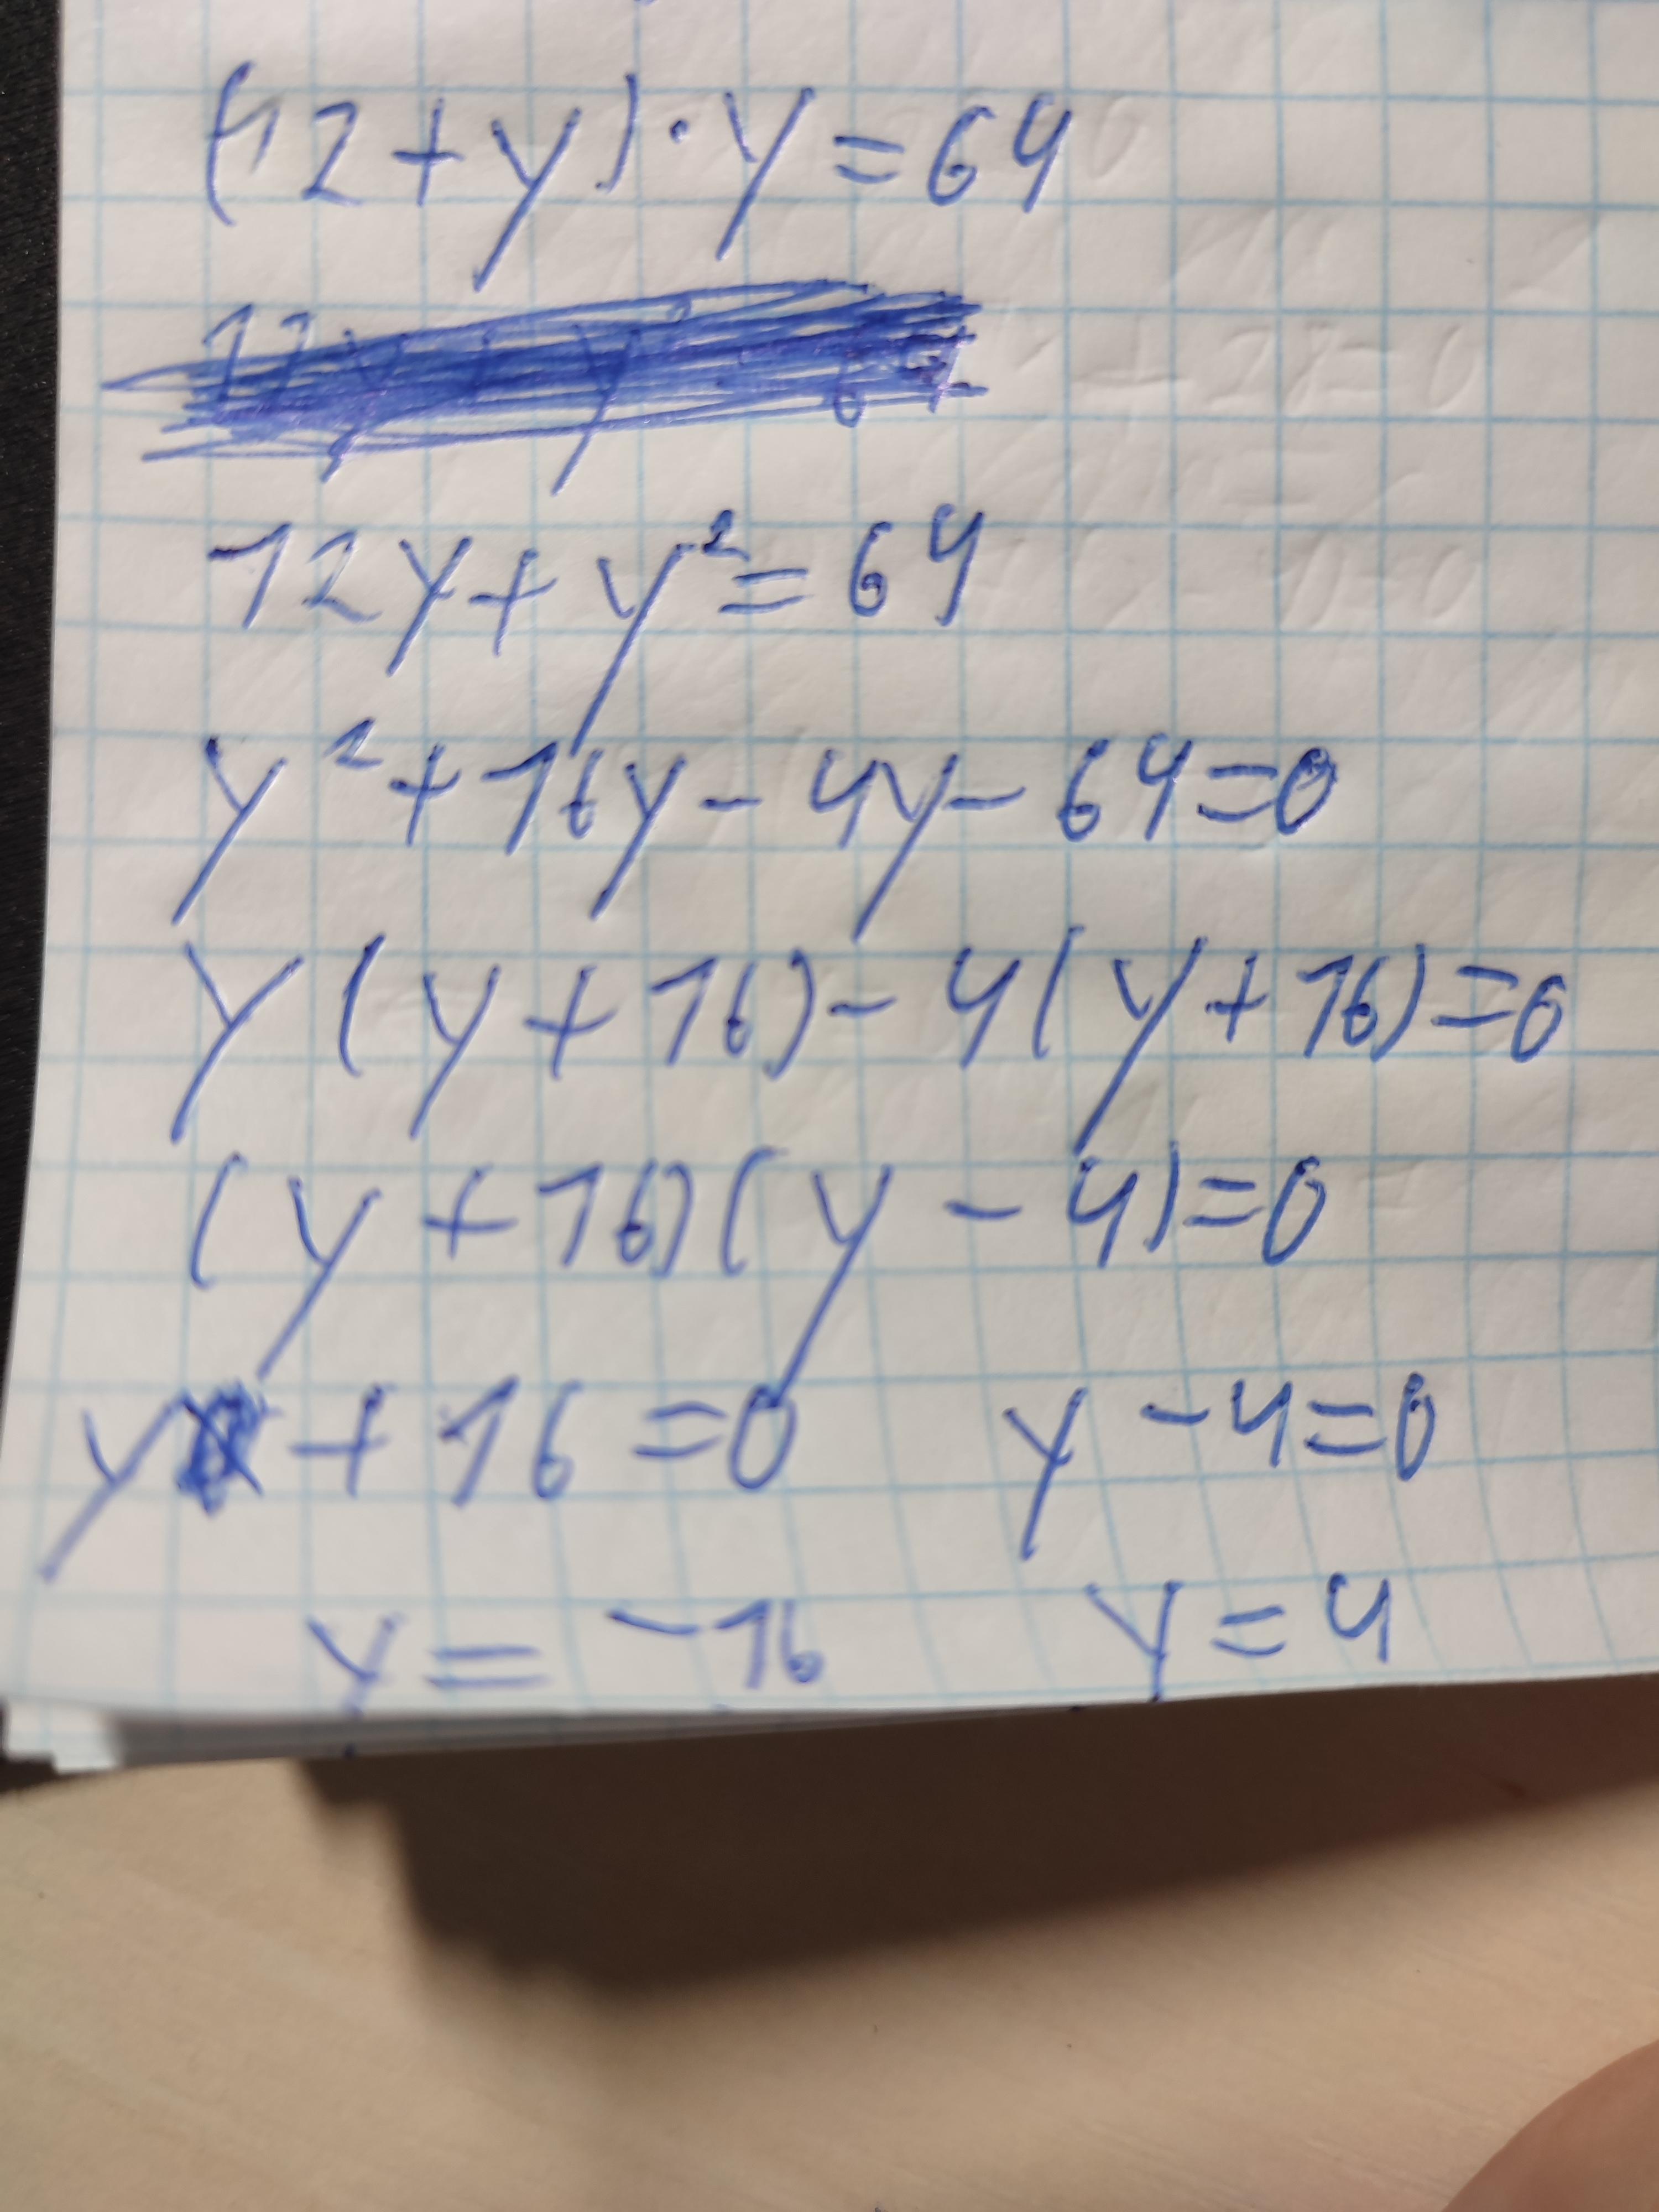 (12+y)·y=64
12y+y²=64
y²+16y-4y-64=0
y(y+16)-4(y+16)=0
(y+16)(y-4)=0
y+16=0 y-4=0
y=-16 y=4